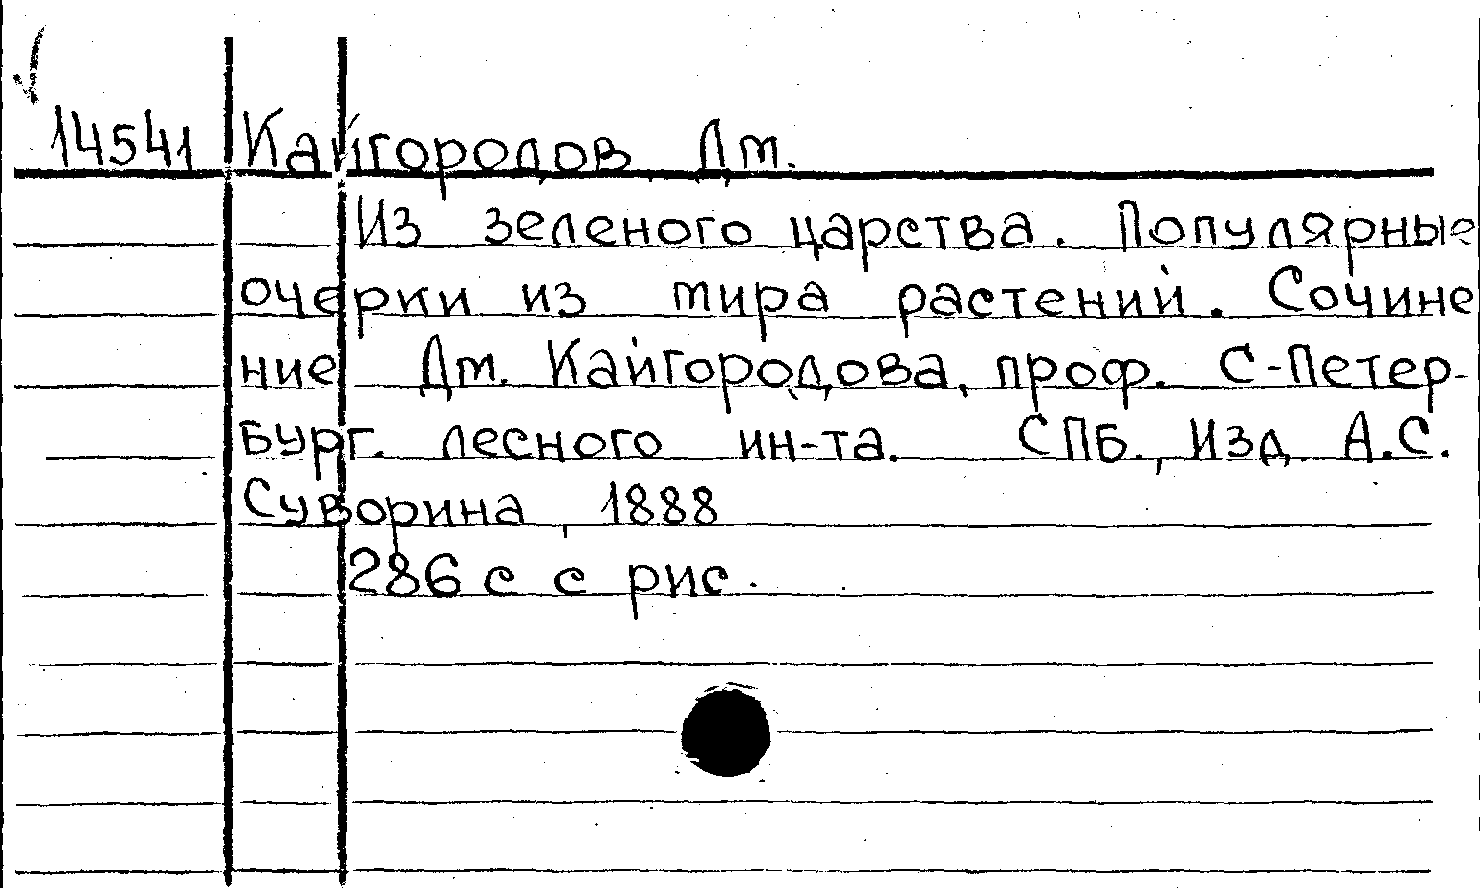 14541 Кайгородов Дм.
Из зеленого царства. Популярные
очерки из мира растений. Сочине
ние Дм. Кайгородова, проф. С-Петер-
бург. лесного ин-та. СПБ., Изд. А.С.
Суворина, 1888
286 с с рис.